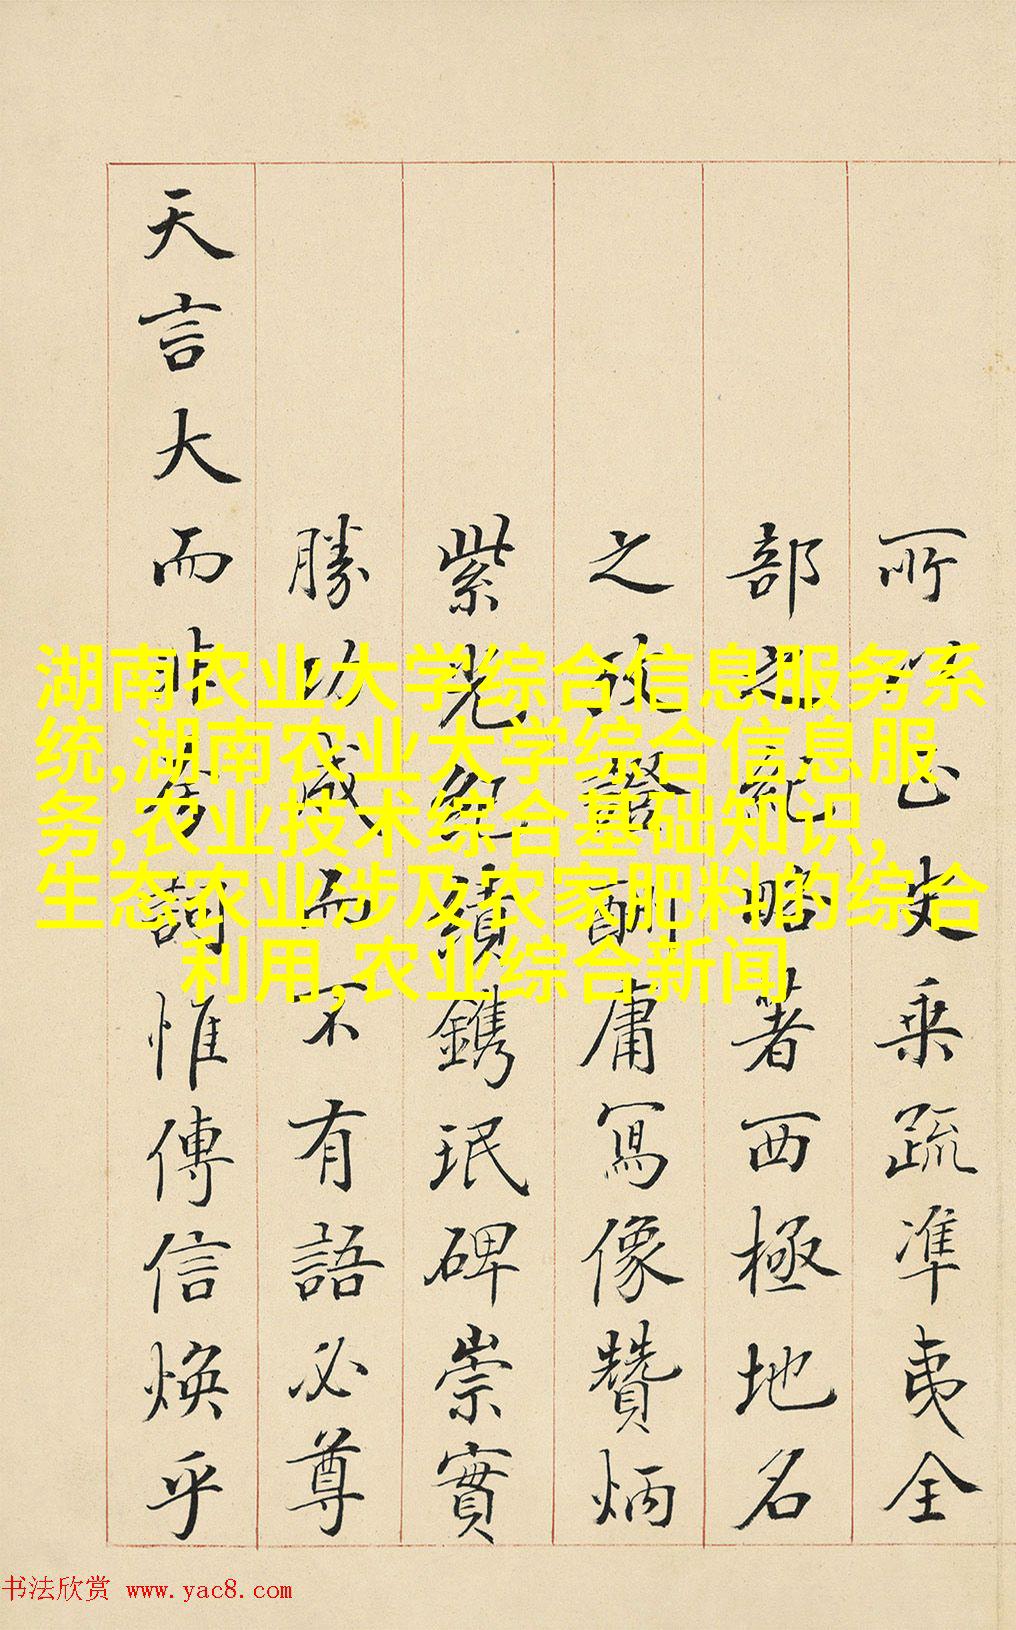 所以正史乘疏準夷全
部之紀略著西極地名
之殊酬庸寫像贊炳
紫光紀績鐫珉碑崇實
勝功成而不有語必尊
天言大而非夸詞惟傳信煥乎
湖南农业大学综合信息服务系
统,湖南农业大学综合信息服
务,农业技术综合基础知识,
生态农业涉及农家肥料的综合
利用,农业综合新闻
书法欣赏 www.yac8.com